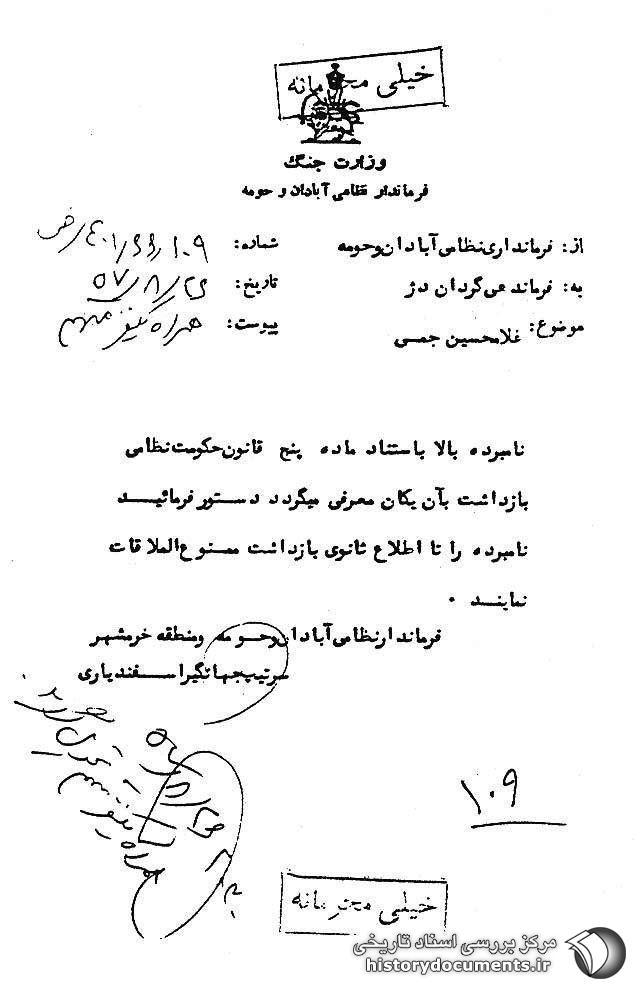 خیلی محرمانه
وزارت جنگ
فرماندار نظامی آبادان و حومه
از: فرمانداری نظامی آبادان و حومه
شماره: ۴۰۱/۶۶/۱۰۹
به: فرماندهی گردان دژ
تاریخ: ۵۷/۸/۲۶
موضوع: غلامحسین جمی
پیوست: همراه یکنفر متهم
نامبرده بالا باستناد ماده پنج قانون حکومت نظامی
بازداشت بآن یکان معرفی میگردد دستور فرمائید
نامبرده را تا اطلاع ثانوی بازداشت ممنوع الملاقات
نمایند .
فرماندار نظامی آبادان و حومه و منطقه خرمشهر
سرتیپ جهانگیر اسفندیاری
۱۰۹
خیلی محرمانه
مرکز بررسی اسناد تاریخی
historydocuments.ir